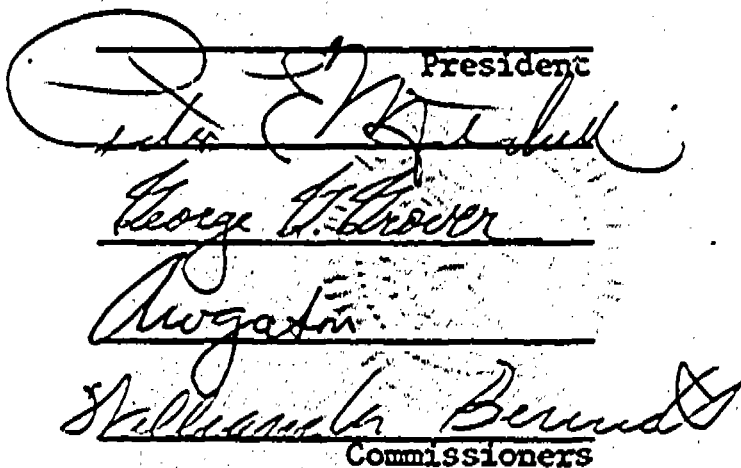 President
Peter E Mitchell
George G. Grover
William M. Bennett
Commissioners